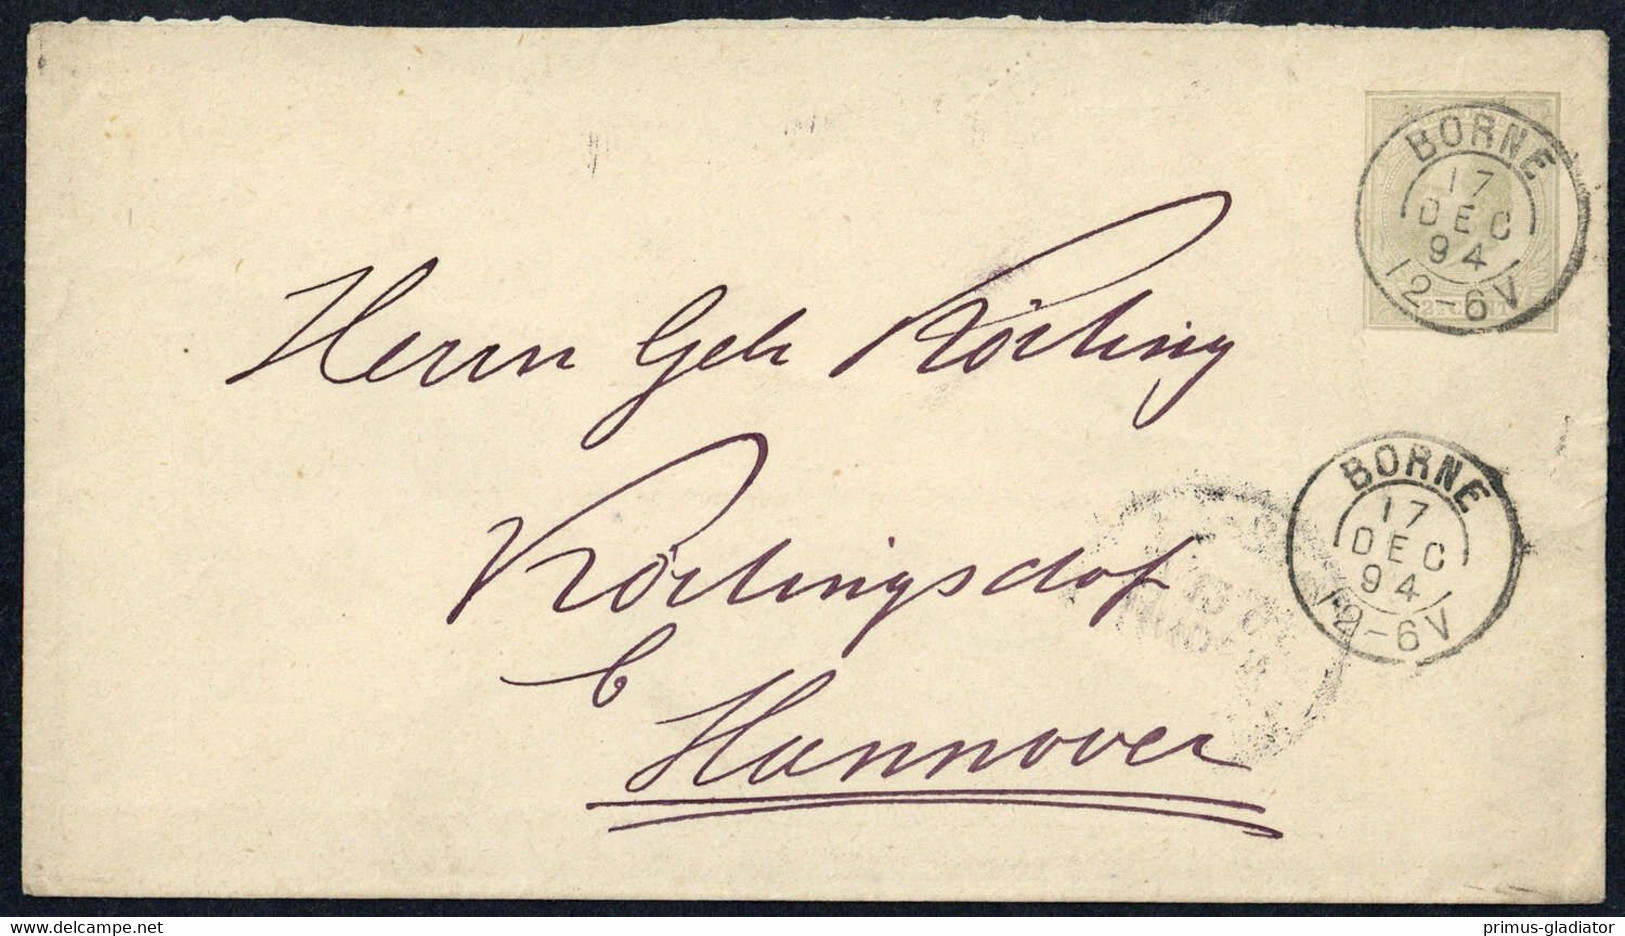 BORNE
17
DEC
94
12-6V
Herrn Gebr Körting
Körtingsdof
b
Hannover
BORNE
17
DEC
94
12-6V
delcampe.net
primus-gladiator